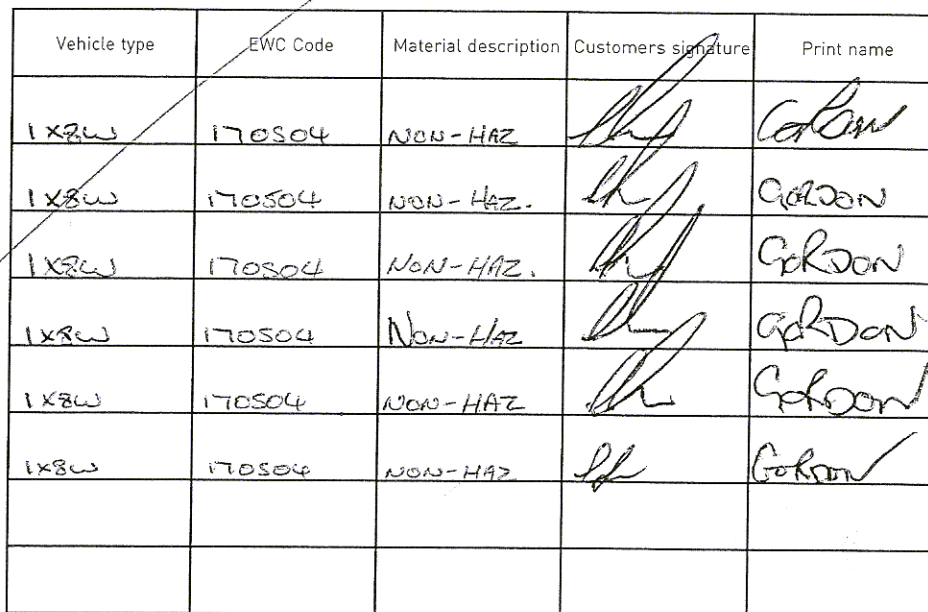 Vehicle type EWC Code Material description Customers signature Print name
1x8w 170504 NON-HAZ GORDON
1x8w 170504 NON-HAZ. GORDON
1x8w 170504 NON-HAZ. GORDON
1x8w 170504 NON-HAZ GORDON
1x8w 170504 NON-HAZ GORDON
1x8w 170504 NON-HAZ GORDON